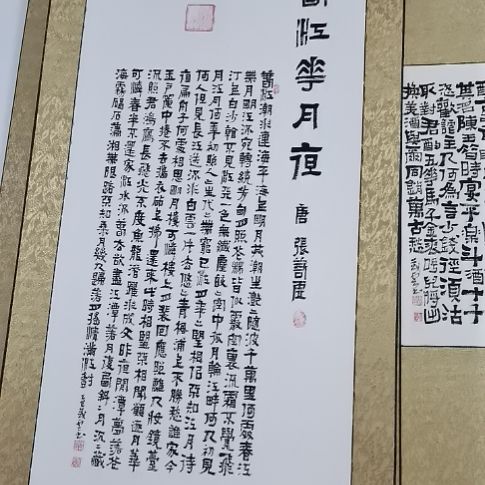 江花月夜
唐 張若虛
春江潮水連海平海上明月共潮生灩灩隨波千萬里何處春江
無月明江流宛轉繞芳甸月照花林皆似霰空裏流霜不覺飛
汀上白沙看不見江天一色無纖塵皎皎空中孤月輪江畔何人初見
月江月何年初照人人生代代無窮已江月年年望相似不知江月待
何人但見長江送流水白雲一片去悠悠青楓浦上不勝愁誰家今
夜扁舟子何處相思明月樓可憐樓上月裴回應照離人妝鏡臺
玉戶簾中捲不去擣衣砧上拂還來此時相望不相聞願逐月華
流照君鴻雁長飛光不度魚龍潛躍水成文昨夜閒潭夢落花
可憐春半不還家江水流春去欲盡江潭落月復西斜斜月沉沉藏
海霧碣石瀟湘無限路不知乘月幾人歸落月搖情滿江樹
其名陳王昔時宴平樂斗酒十千
恣讙謔主人何為言少錢徑須沽
取對君酌五花馬千金裘呼兒將出
換美酒與爾同銷萬古愁